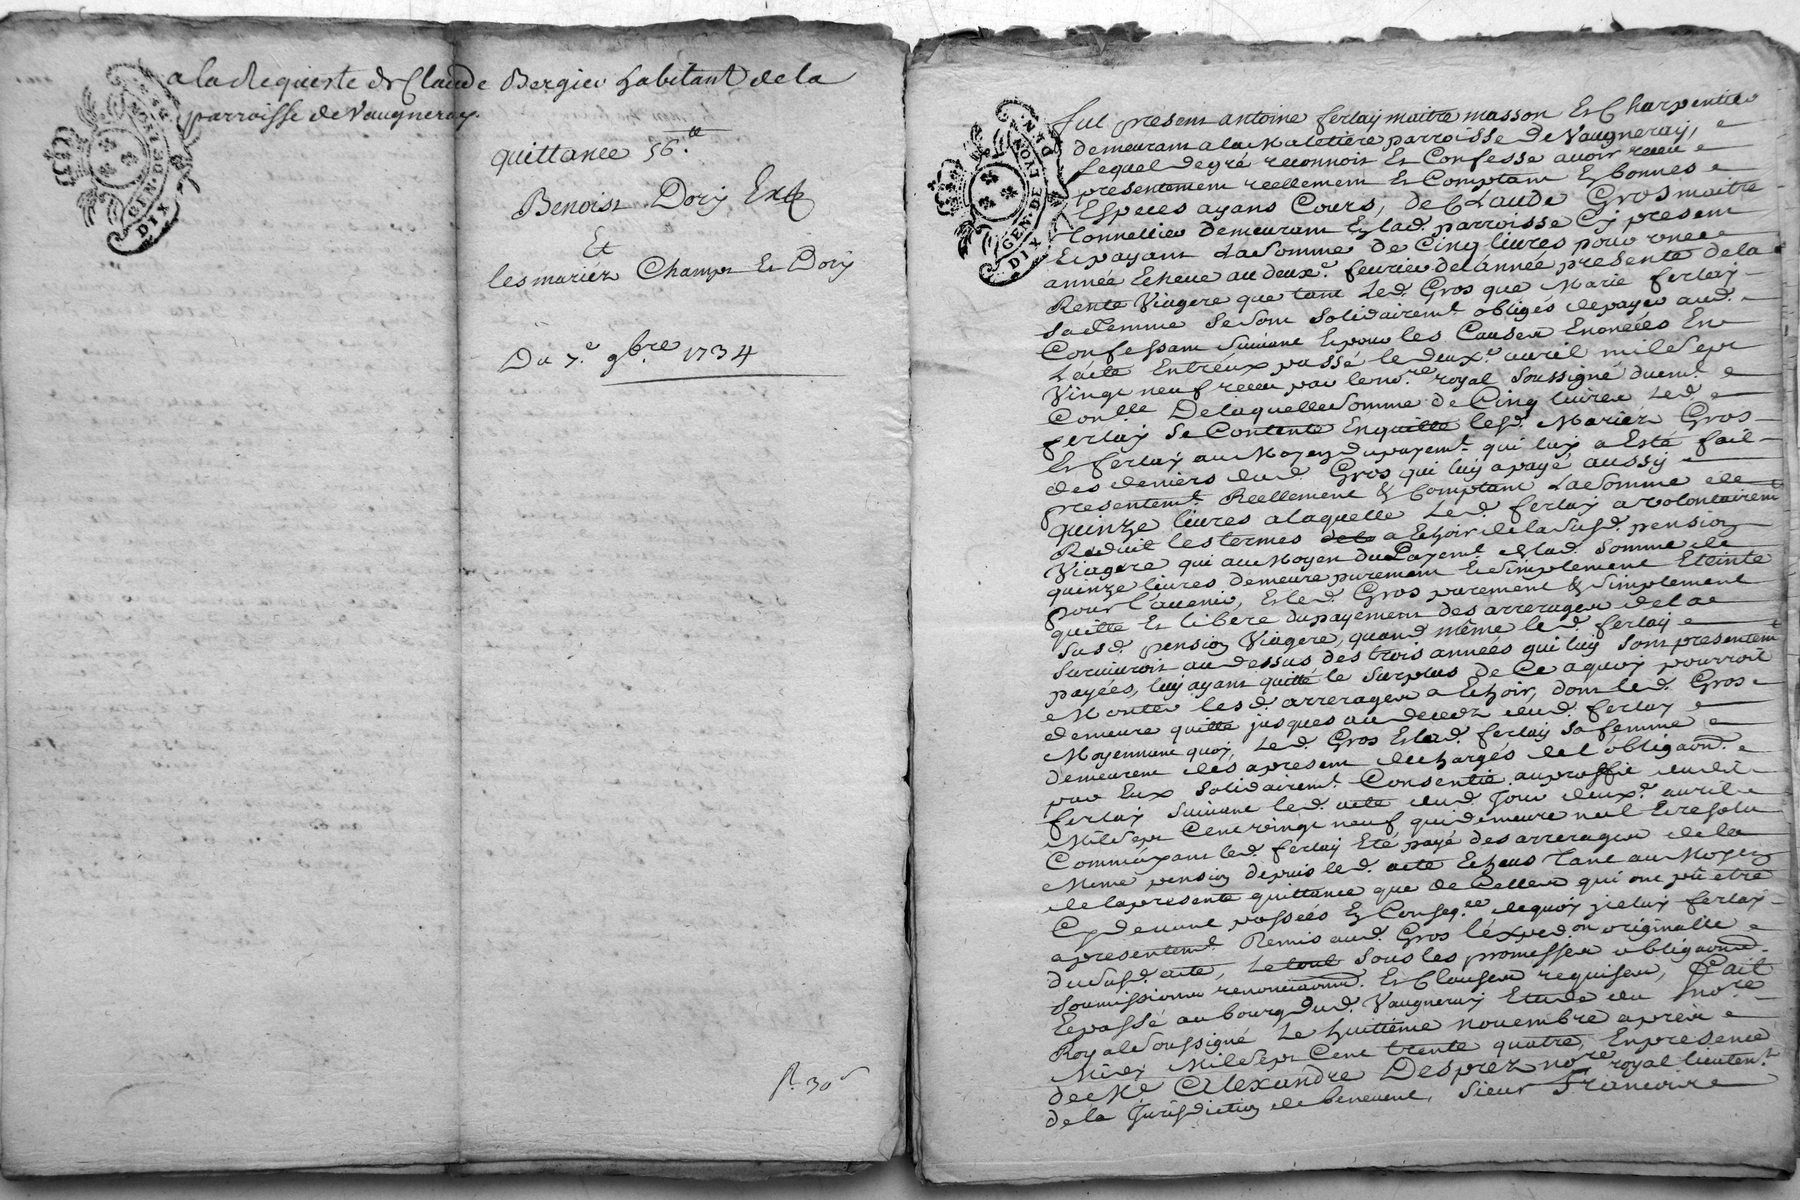 a la Requeste de Claude Bergier habitant de la
parroisse de Vaugneray
quittance 56.tt
Benoist Dory
Et
les mariéz Champt Et Dory
Du 7.e 9bre 1734
GEN. DE LYON
DIX DEN
fut présent antoine ferlay maitre masson Et Charpentier
demeurant a la Maletiere parroisse de Vaugneray,
Lequel de gré reconnoit Et Confesse avoir receu
presentement reellement Et Comptant En bonnes
Especes ayans Cours, de Claude Gros maitre
tonnellier demeurant En lad. parroisse Cy present
Et payant La Somme de Cinq livres pour une
année Echeue au deuxe. fevrier de l'année presente de la
Rente Viagere que tant Led. Gros que Marie ferlay
Sa femme Se Sont Solidairemt. obligés de payer aud.
Confessant Suivant Et pour les Causes Enoncées En
L'acte Entréux passé le deuxe. avril mil Sept
Vingt neuf receu par le nore. royal Soussigné duemt.
Conllé De laquelle Somme de Cinq livres Led.
ferlay Se Contente En quitte lesd. Mariéz Gros
Et ferlay au Moyen du payemt. qui luy a Esté fait
des deniers dud. Gros qui luy a payé aussy
presentemt. Réellement & Comptant La Somme de
quinze livres a laquelle Led. ferlay a volontairemt
Reduit les termes a Echoir de la Susd. pension
Viagere qui au Moyen du Payemt. de lad. Somme de
quinze livres demeure purement Et Simplement Eteinte
pour l'avenir, Et led. Gros purement & Simplement
quitte Et libere du payement des arrerages de la
Susd. pension Viagere, quand même led. ferlay
Survivroit au dessus des trois années qui luy Sont presentemt
payées, luy ayant quitté le Surplus de Ce a quoy pourroit
Monter lesd. arrerages a Echoir, dont led. Gros
demeure quitte jusques au decedz dud. ferlay
Moyennant quoy Led. Gros Et lad. ferlay Sa femme
demeurent dés a present dechargés de l'obligaond.
par Eux Solidairemt. Consentie au proffit dudit
ferlay Suivant led. acte dud. Jour deuxe. avril
Mil Sept Cent vingt neuf qui demeure nul Et resolu
Comme ayant led. ferlay Eté payé des arrerages de la
Meme pension depuis led. acte Echeus Tant au Moyen
de la presente quittance que de Celles qui ont pû etre
Cy devant passées En Conseqce. de quoy yceluy ferlay
a presentemt. Remis aud. Gros l'expedon originalle
du Susd. acte, Le tout Sous les promesses obligaond.
Soumissions renonciaond. Et Clauses requises, Fait
Et passé au bourg dud. Vaugneray Etude du nore
Royal Soussigné Le huitième novembre apres
Midy Mil Sept Cent trente quatre, En presence
de Me Alexandre Desprez nore royal lieutent.
de la Jurisdiction de benevent, Sieur Francois